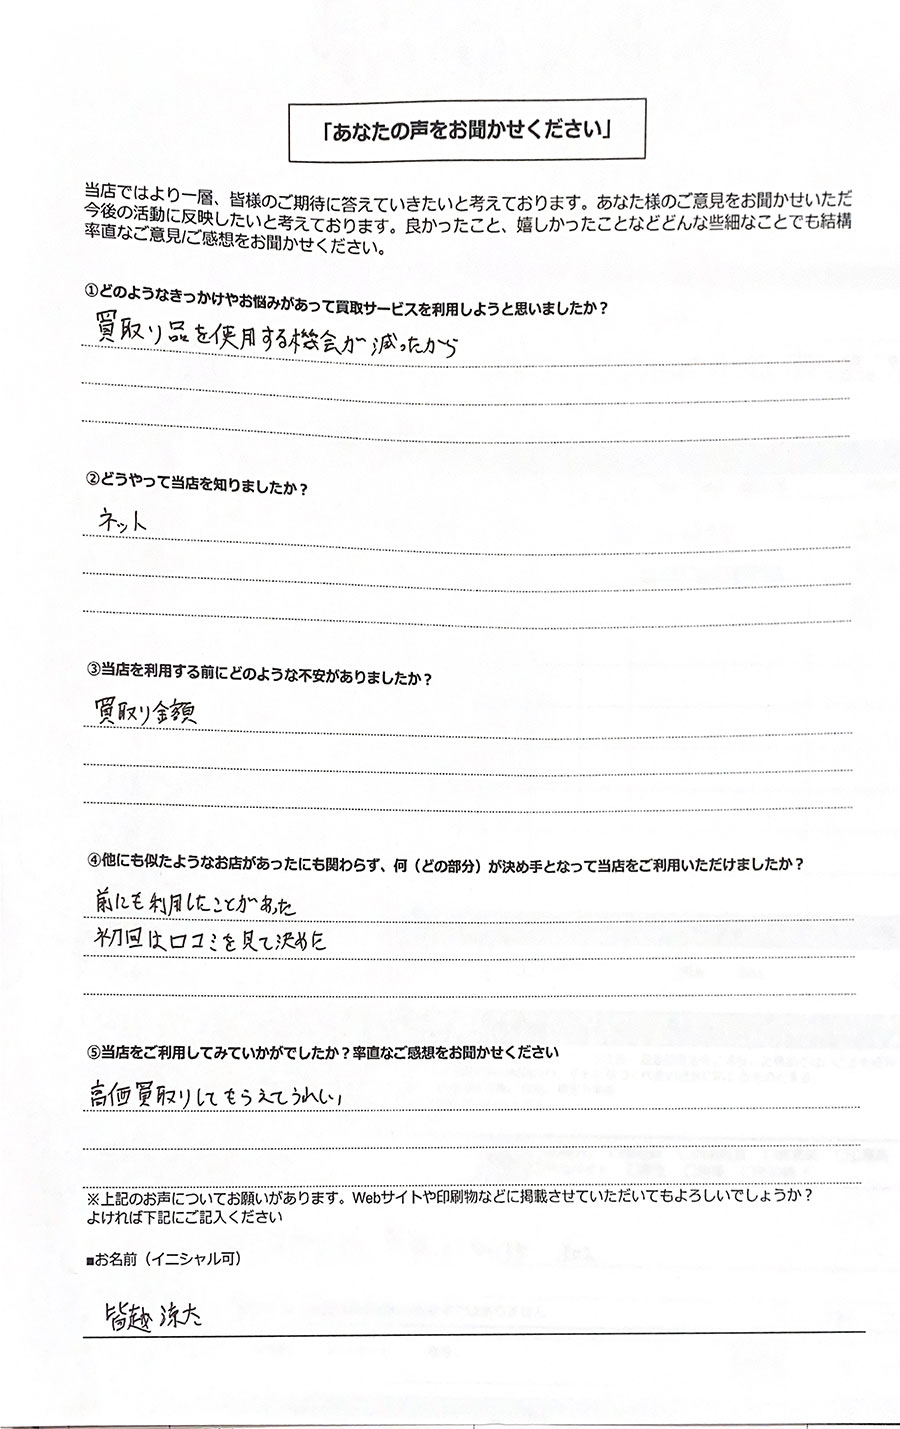 「あなたの声をお聞かせください」
当店ではより一層、皆様のご期待に答えていきたいと考えております。あなた様のご意見をお聞かせいただ
今後の活動に反映したいと考えております。良かったこと、嬉しかったことなどどんな些細なことでも結構
率直なご意見/ご感想をお聞かせください。
①どのようなきっかけやお悩みがあって買取サービスを利用しようと思いましたか？
買取り品を使用する機会が減ったから
②どうやって当店を知りましたか？
ネット
③当店を利用する前にどのような不安がありましたか？
買取り金額
④他にも似たようなお店があったにも関わらず、何（どの部分）が決め手となって当店をご利用いただけましたか？
前にも利用したことがあった
初回は口コミを見て決めた
⑤当店をご利用してみていかがでしたか？率直なご感想をお聞かせください
高価買取りしてもらえてうれしい
※上記のお声についてお願いがあります。Webサイトや印刷物などに掲載させていただいてもよろしいでしょうか？
よければ下記にご記入ください
■お名前（イニシャル可）
皆越 涼太